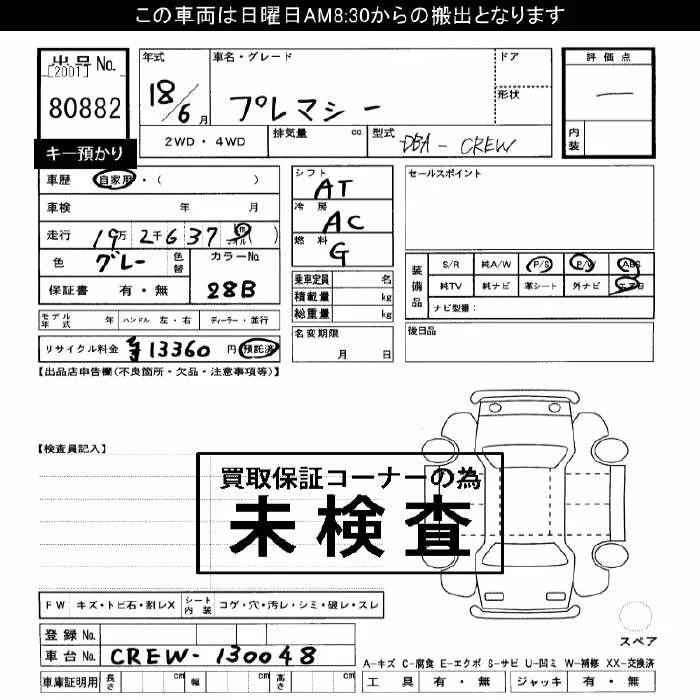 この車両は日曜日AM8:30からの搬出となります
出品No.
[2001]
80882
キー預かり
年式 車名・グレード ドア
18/6月 プレマシー 形状
2WD・4WD 排気量 cc 型式 DBA-CREW
評価点
—
内装
車歴 自家用・( )
車検 年 月
走行 19万2千637 km マイル )
色 グレー 色替 カラーNo. 28B
保証書 有・無
モデル年式 年 ハンドル 左・右 ディーラー・並行
リサイクル料金 ¥13360円 預託済
シフト AT
冷房 AC
燃料 G
乗車定員 名
積載量 kg
総重量 kg
名変期限
月 日
セールスポイント
装備品 S/R 純A/W P/S P/W ABS
純TV 純ナビ 革シート 外ナビ エアB
ナビ型番:
後日品
【出品店申告欄(不良箇所・欠品・注意事項等)】
【検査員記入】
買取保証コーナーの為
未検査
FW キズ・トビ石・割レX シート内装 コゲ・穴・汚レ・シミ・破レ・スレ
登録No.
車台No. CREW-130048
車庫証明用 長さ cm 幅 cm 高さ cm
スペア
A-キズ C-腐食 E-エクボ S-サビ U-凹ミ W-補修 XX-交換済
工具 有・無 ジャッキ 有・無